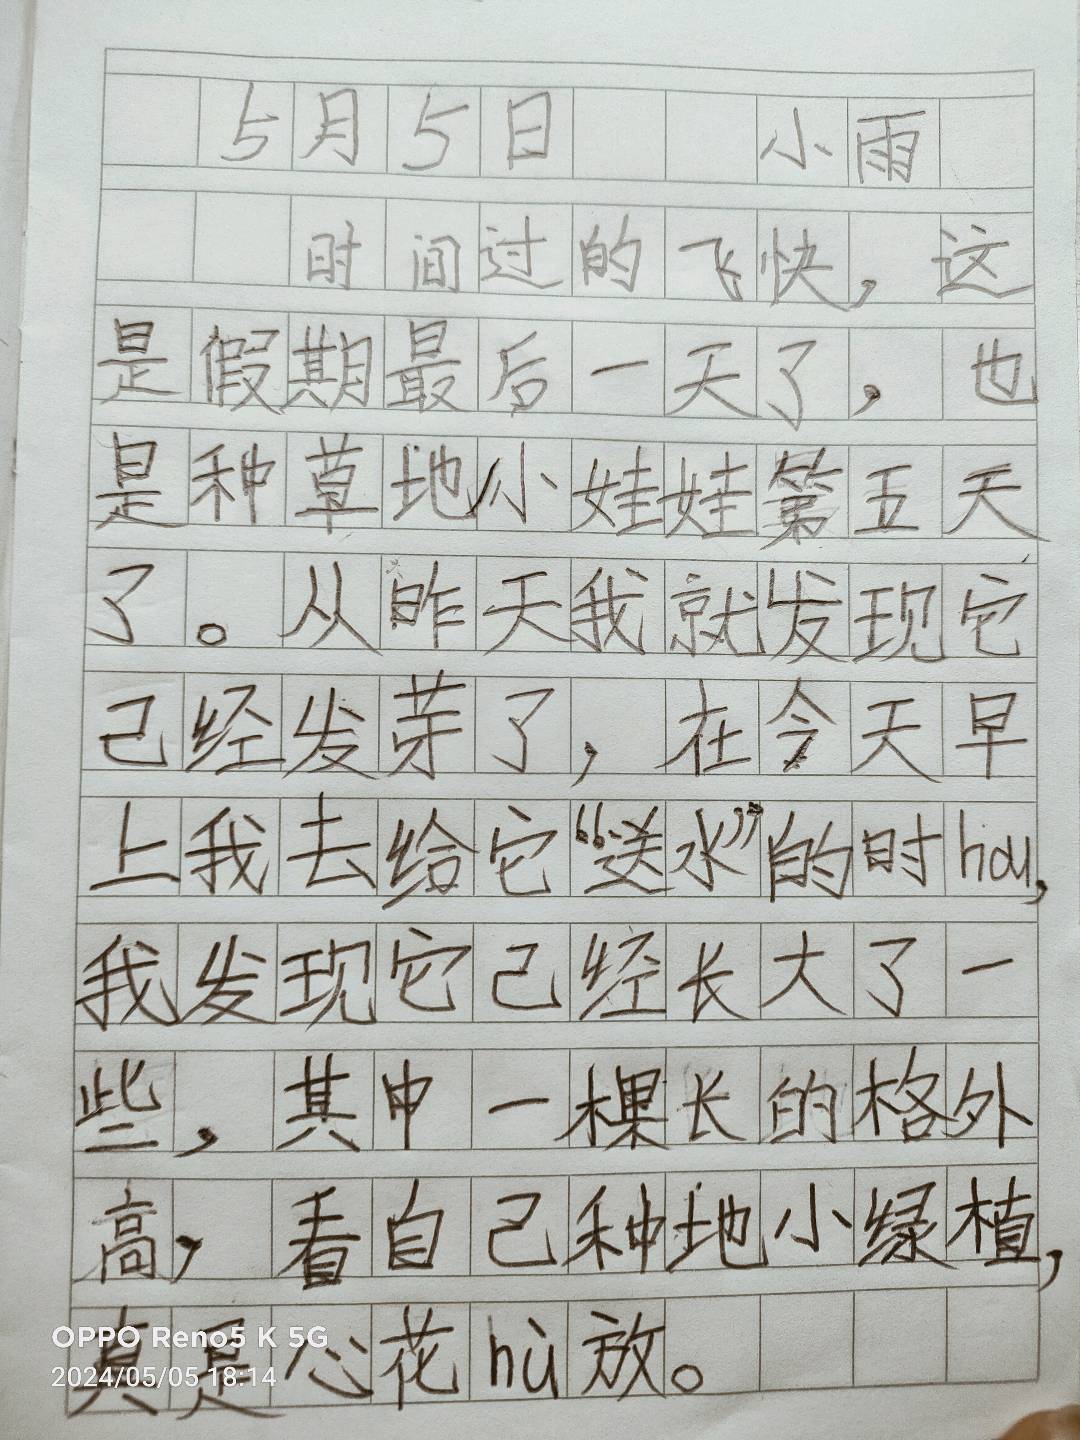 5月5日 小雨
时间过的飞快，这
是假期最后一天了，也
是种草地小娃娃第五天
了。从昨天我就发现它
己经发芽了，在今天早
上我去给它“送水”的时hou，
我发现它己经长大了一
些，其中一棵长的格外
高，看自己种地小绿植，
真是心花hù放。
OPPO Reno5 K 5G
2024/05/05 18:14